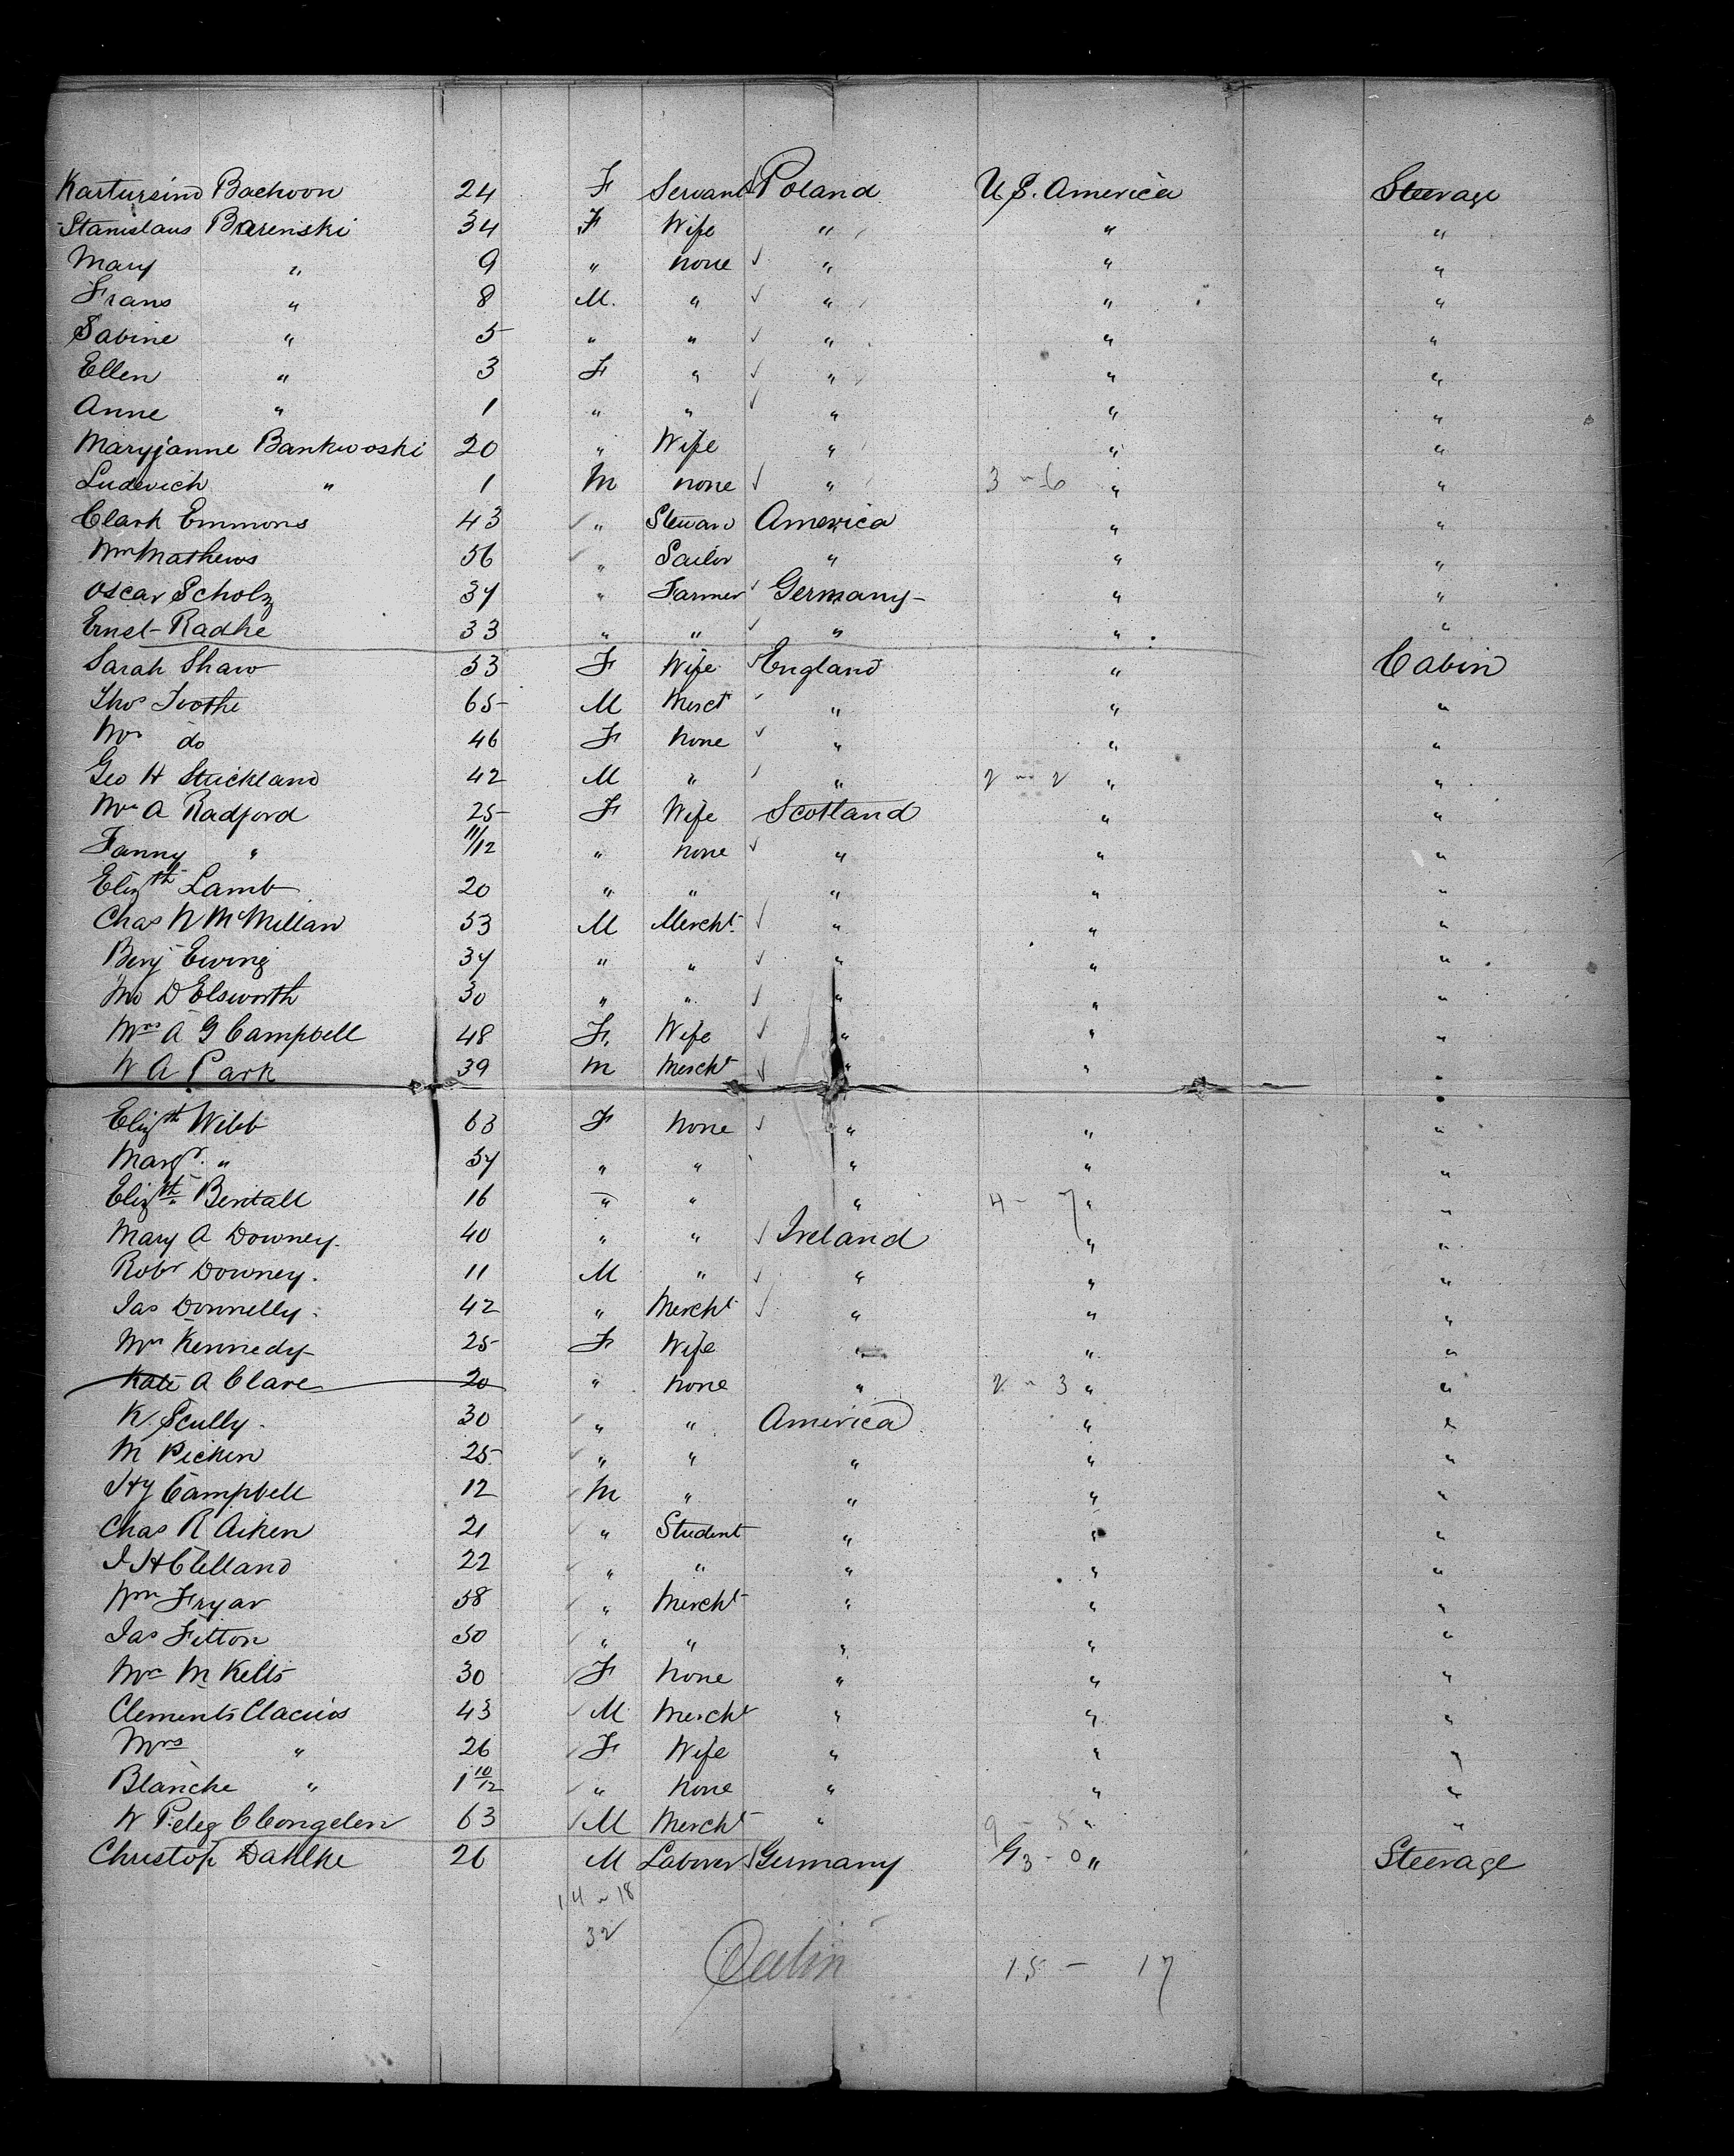 Kartursind Bachoon 24 F Servant Poland U.S. America Steerage
Stanislaus Barenski 34 F Wife " " "
Mary " 9 " none " " "
Frans " 8 M. " " " "
Sabine " 5 " " " " "
Ellen " 3 F " " " "
Anne " 1 " " " " "
Maryjanne Bankwoski 20 " Wife " " "
Ludevich " 1 M none " 3 - 6 " "
Clark Emmons 43 " Steward America " "
Wm Mathews 56 " Sailor " " "
Oscar Scholz 34 " Farmer Germany " "
Ernst Radke 33 " " " " "
Sarah Shaw 53 F Wife England " Cabin
Thos 65 M Merct " " "
Mrs do 46 F none " " "
Geo H Stuckland 42 M " " 2 - 2 " "
Mrs A Radford 25 F Wife Scotland " "
Fanny " 11/12 " none " " "
Elizth Lamb 20 " " " " "
Chas N McMillan 53 M Mercht " " "
Benj Ewing 34 " " " " "
D Elsworth 30 " " " " "
Mrs A G Campbell 48 F. Wife " " "
W A Park 39 M Mercht " " "
Elizth Webb 63 F none " " "
Margt. " 54 " " " " "
Elizth Bentall 16 " " " 4 - 7 " "
Mary A Downey. 40 " " Ireland " "
Robt Downey. 11 M " " " "
Jas Donnelly. 42 " Mercht " " "
Mrs Kennedy 25 F Wife " " "
Kate A Clare 20 " none " 2 - 3 " "
K Scully. 30 " " America " "
M Picken 25 " " " " "
Hy Campbell 12 M " " " "
Chas R Aiken 21 " Student " " "
J H Clelland 22 " " " " "
Wm Fryar 58 " Mercht " " "
Jas Fitton 50 " " " " "
Mrs M Kelts 30 F None " " "
Clements Clacius 43 M Mercht " " "
Mrs " 26 F Wife " " "
Blanche " 1 10/12 " none " " "
W Peleg C Congelen 63 M Mercht " 9 - 5 " "
Christop Dahlke 26 M Laborer Germany G 3 - 0 " Steerage
14 - 18
32
Cabin 15 - 17